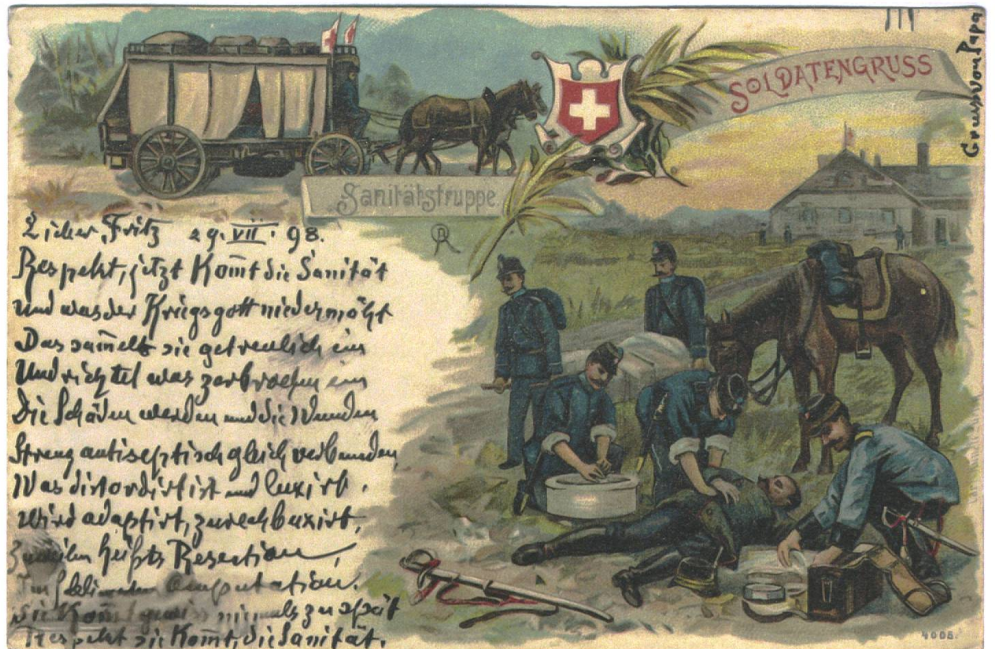 SOLDATENGRUSS
Gruss von Papa
Sanitätstruppe.
Lieber Fritz 29. VII. 98.
Respekt, jetzt Kom̄t die Sanität
Und was der Kriegsgott niedermäht
Das sam̄elt sie getreulich ein
Und richtet was zerbrochen ein
Die Schäden werden und die Wunden
Streng antiseptisch gleich verbunden,
Was distordirt ist und luxirt,
Wird adaptirt, zurechtbuxirt,
Zuweilen heissts Resection,
Im Amputation.
Sie Kom̄t niemals zu spät
Respekt sie Kom̄t, die Sanität.
4006.